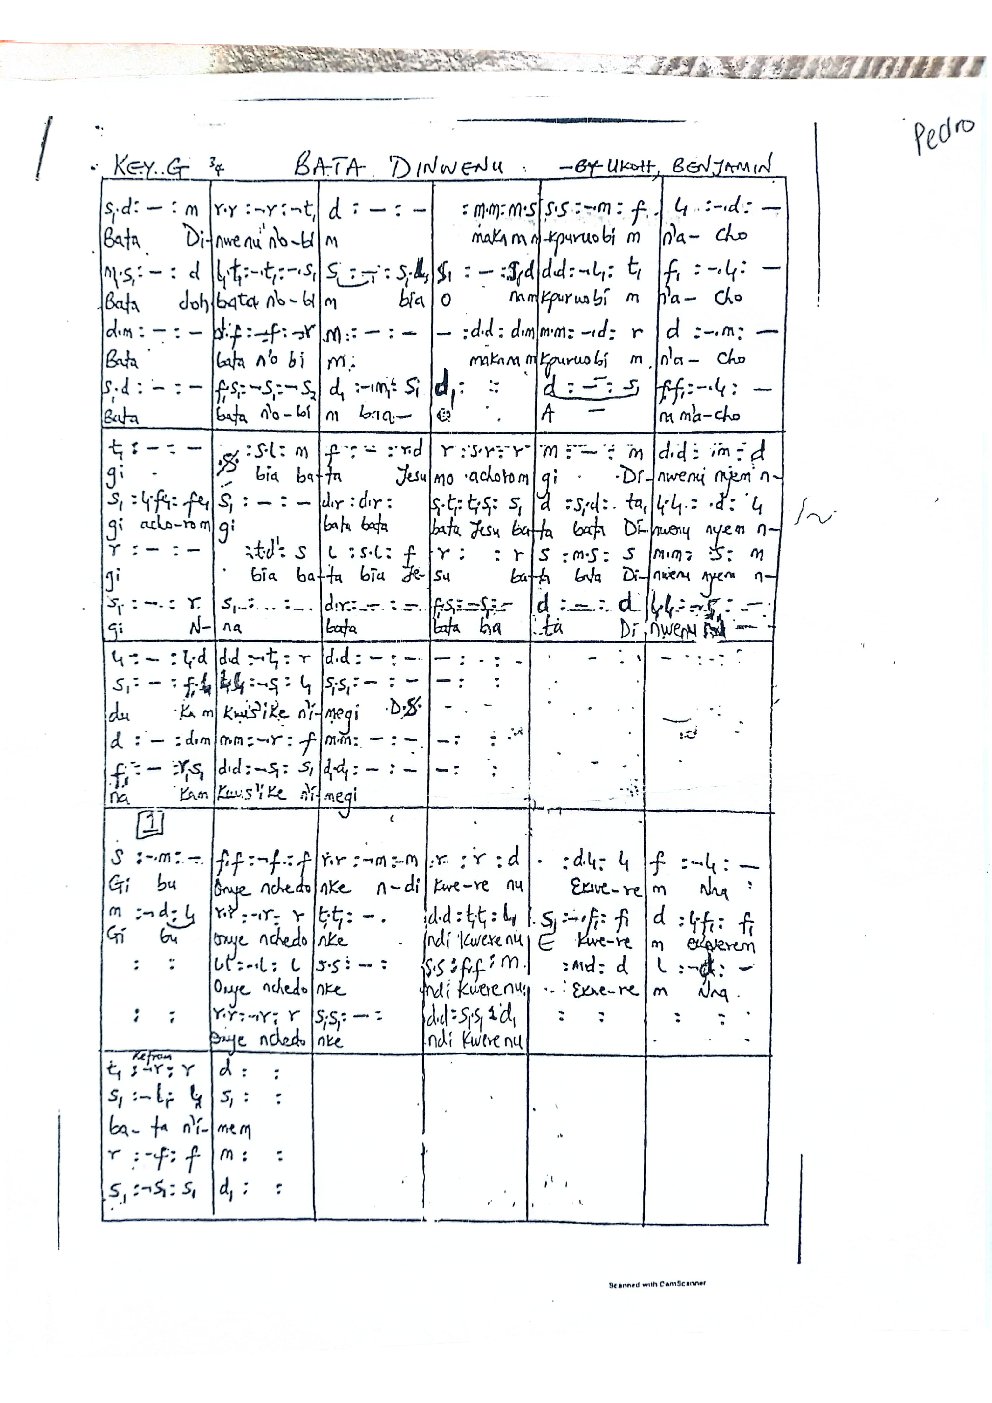 Pedro
KEY. G 3/4 BATA DINWENU. - BY UKOH, BENJAMIN
s₁.d : – : m | r.r : -.r : -.t₁ | d : – : – | : m.m : m.s | s.s : -.m : f | l₁ : -.d : –
Bata Di- nwenu n'o-bi m makam m kpuruobi m n'a- cho
m₁.s₁ : – : d | l₁.t₁ : -.t₁ : -.s₁ | s₁ : – : s₁.l₁ | s₁ : – : s₁.d | d.d : -.l₁ : t₁ | f₁ : -.l₁ : –
Bata doh bata n'o-bi m bia o nam kpuruobi m n'a- cho
d.m : – : – | d.f : -.f : -.r | m : – : – | – : d.d : d.m | m.m : -.d : r | d : -.m : –
Bata bata n'o bi m. makam m kpuruobi m n'a- cho
s₁.d : – : – | f₁.s₁ : -.s₁ : -.s₂ | d₁ : -.m₁ : s₁ | d₁ : : | d : – : s₁ | f₁.f₁ : -.l₁ : –
Bata bata n'o-bi m bia- A – na m'a-cho
t₁ : – : – | : s.l : m | f : – : r.d | r : s.r : r | m : – : m | d.d : m : d
gi bia ba-ta Jesu mo achorom gi Di- nwenu nyem n-
s₁ : l₁.f₁ : fe₁ | s₁ : – : – | d.r : d.r : | s₁.t₁ : t₁.s₁ : s₁ | d : s₁.d : ta₁ | l₁.l₁ : d : l₁
gi acho-rom gi bata bata bata Jesu ba- ta bata Di- nwenu nyem n-
r : – : – | : t.d' : s | l : s.l : f | r : : r | s : m.s : s | m.m : s : m
gi bia ba-ta bia Je- su ba- ta bata Di- nwenu nyem n-
s₁ : – : r | s₁ : : | d.r : – : – | f₁.s₁ : -.s₁ : – | d : – : d | l₁.l₁ : -.s₁ : –
gi N- na bata bata bia ta Di nwenu
l₁ : – : l₁.d | d.d : -.t₁ : r | d.d : – : – | – : :
s₁ : – : f₁.l₁ | l₁.l₁ : -.s₁ : l₁ | s₁.s₁ : – : – | – : :
du kam kuus'ike n'i- megi D.S.
d : – : d.m | m.m : -.r : f | m.m : – : – | – : :
f₁ : – : r₁.s₁ | d.d : -.s₁ : s₁ | d₁.d₁ : – : – | – : :
na kam kuus'ike n'i- megi
1
s : -.m : – | f.f : -.f : f | r.r : -.m : m | r : r : d | : d.l₁ : l₁ | f : -.l₁ : –
Gi bu Onye nchedo nke n-di kwe-re nu Ekwe-re m Nna
m : -.d : l₁ | r.r : -.r : r | t₁.t₁ : – | d.d : t₁.t₁ : l₁ | s₁ : -.f₁ : f₁ | d : l₁.f₁ : f₁
Gi bu onye nchedo nke ndi kwerenu E kwe-re m ekwerem
: : | l.l : -.l : l | s.s : – : | s.s : f.f : m | : m.d : d | l : -.d : –
Onye nchedo nke ndi kwerenu Ekwe-re m Nna
: : | r.r : -.r : r | s₁.s₁ : – : | d.d : s₁.s₁ : d₁ | : : | : :
Onye nchedo nke ndi kwerenu
Refram
t₁ : -.r : r | d : :
s₁ : -.l₁ : l₁ | s₁ : :
ba- ta n'i- mem
r : -.f : f | m : :
s₁ : -.s₁ : s₁ | d₁ : :
Scanned with CamScanner